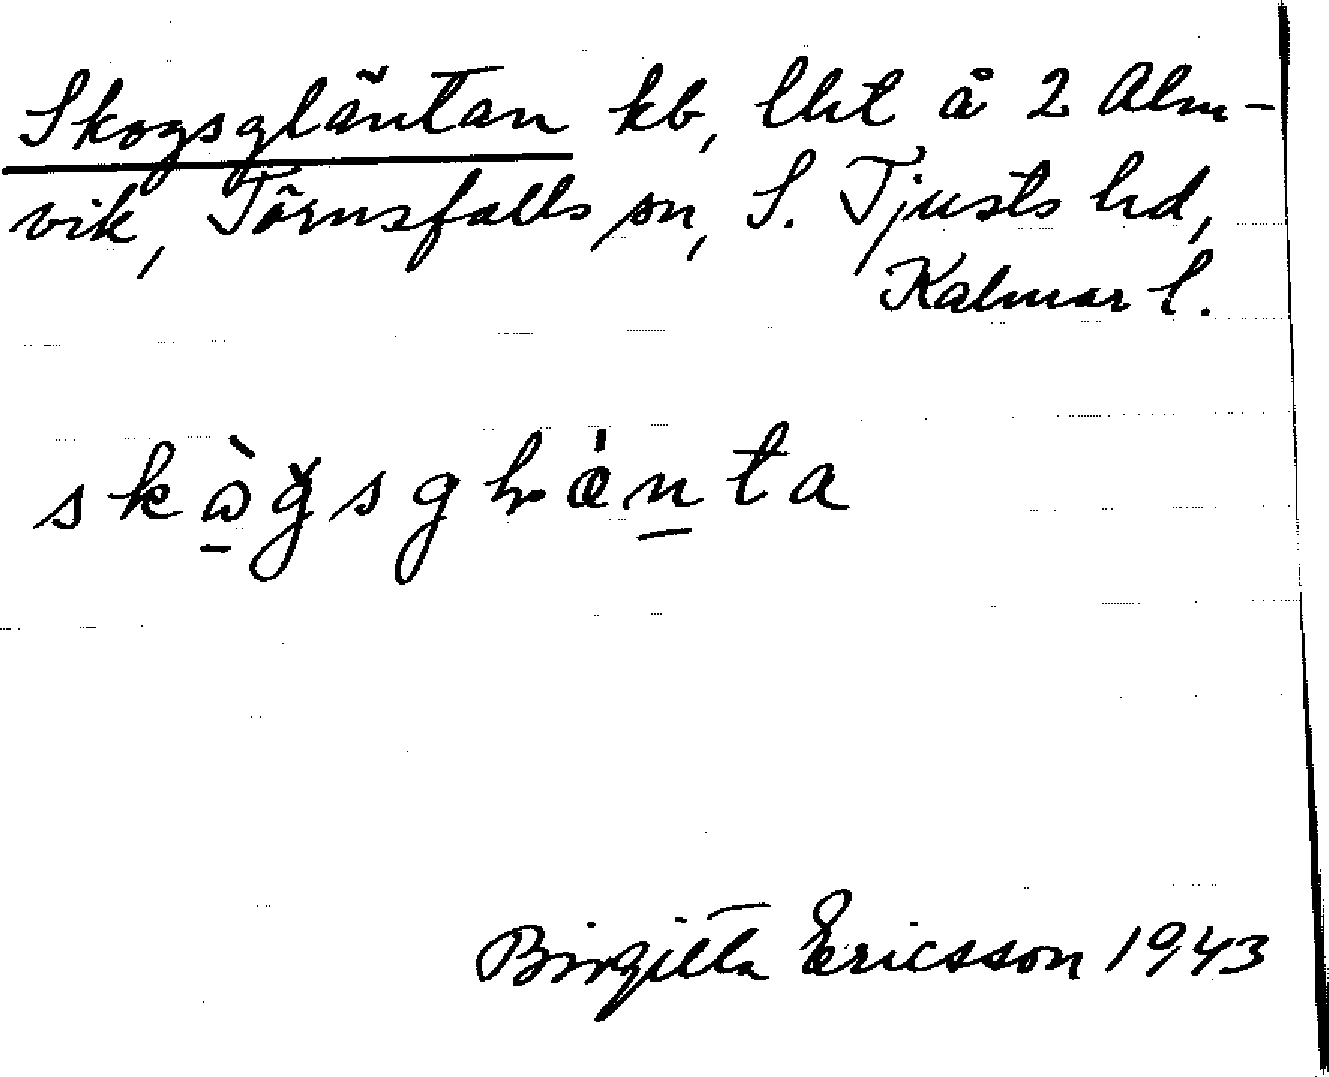 Skogsgläntan kb, lht å 2 Alm-
vik, Törnsfalls sn, S. Tjusts hd,
Kalmar l.
Birgitta Ericsson 1943